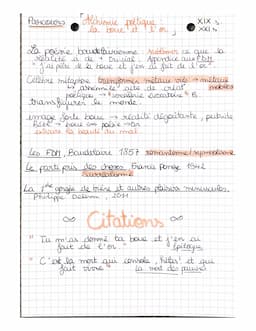 Parcours : "Alchimie poétique : XIXs
la boue et l'or" XXIs
La poésie baudelairienne sublimer ce que la
réalité a de + trivial. Appendice aux FDM
" j'ai pétri de la boue et j'en ai fait de l'or"
Célèbre métaphore transformer métaux vils → métaux
nobles
poétique
transfigurer le monde.
image forte boue → réalité dégoûtante,
boue
extraire la beauté du mal
Les FDM, Baudelaire 1857 romantisme/symbolisme
Le parti pris des choses, Francis Ponge 1942
surréalisme
La 1ère gorgée de bière et autres plaisirs minuscules.
Philippe Delerm,
Citations
" Tu m'as donné ta boue et j'en ai
fait de l'or" Epilogue
" C'est la mort qui console, hélas! et qui
fait vivre" La mort des pauvres